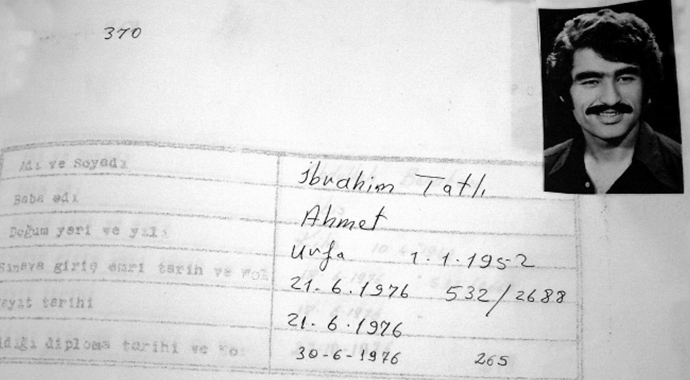 370
Adı ve Soyadı İbrahim Tatlı
Baba adı Ahmet
Doğum yeri ve yılı Urfa 1.1.1952
Sınava giriş emri tarih ve No: 21.6.1976 532/2688
tarihi 21.6.1976
diploma tarihi ve No: 30-6-1976 265